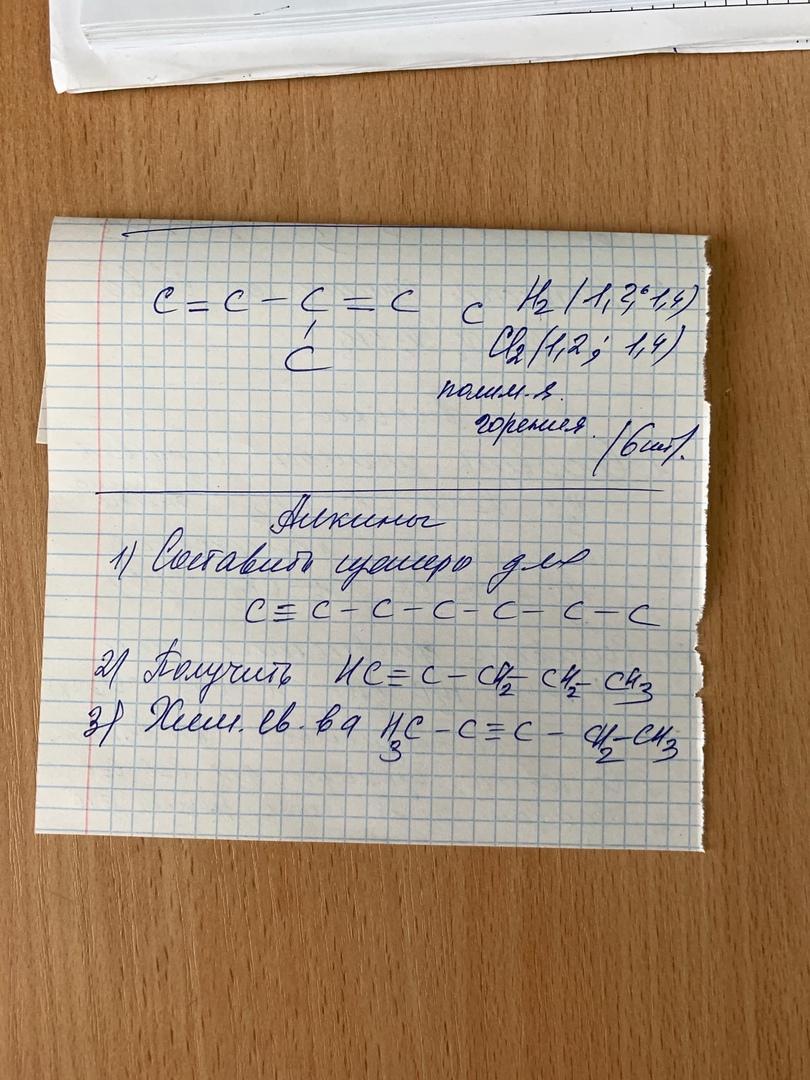 C = C – C = C с H2 (1,2; 1,4)
C Cl2 (1,2; 1,4)
полим-я.
горения. (6 шт).
Алкины
1) Составить изомеры для
C ≡ C – C – C – C – C – C
2) Получить HC ≡ C – CH2 – CH2 – CH3
3) Хим. св-ва H3C – C ≡ C – CH2 – CH3